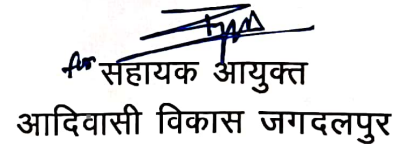 for सहायक आयुक्त
आदिवासी विकास जगदलपुर